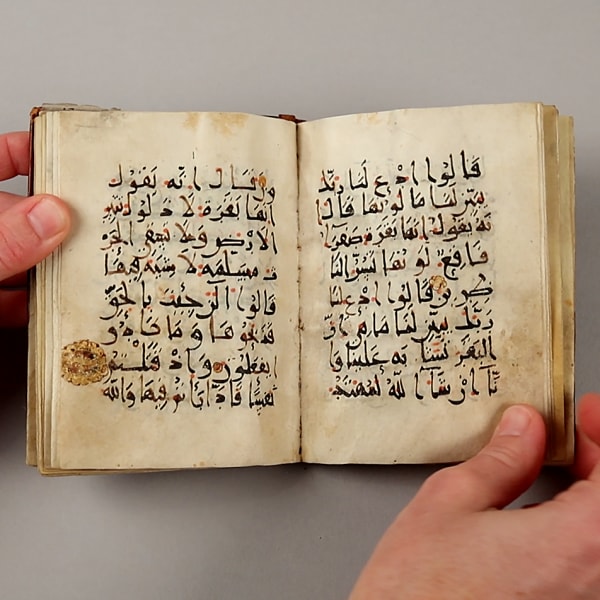 قالوا ادع لنا ربك
يبين لنا ما لونها قال ا
نه يقول انها بقرة صفرا
فاقع لونها تسر النا
ظرين قالوا ادع لنا
ربك يبين لنا ما هي ان
البقر تشبه علينا و
انا ان شا الله لمهتد
ون قال انه يقول
انها بقرة لا ذلول تثير
الارض ولا تسقي الحر
ث مسلمة لا شية فيها
قالوا الن جئت بالحق
فذبحوها وما كادو
ا يفعلون واذ قتلتم
نفسا فادارأتم فيها والله